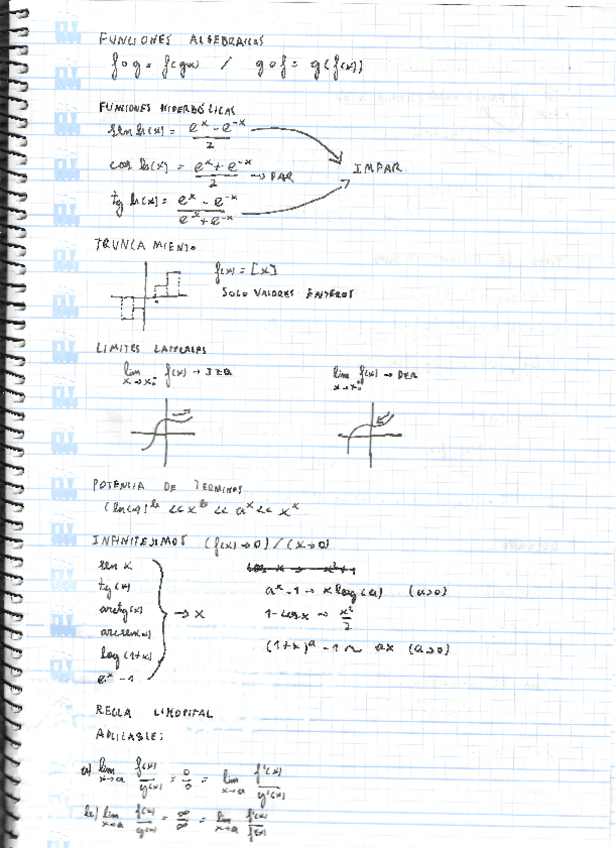 FUNCIONES ALGEBRAICAS
f∘g = f(g(x)) / g∘f = g(f(x))
FUNCIONES HIPERBÓLICAS
sen h(x) = (e^x - e^-x)/2
cos h(x) = (e^x + e^-x)/2 → PAR
IMPAR
tg h(x) = (e^x - e^-x)/(e^x + e^-x)
TRUNCAMIENTO
f(x) = [x]
SOLO VALORES ENTEROS
LIMITES LATERALES
lim x→x₀⁻ f(x) → IZQ lim x→x₀⁺ f(x) → DER
POTENCIA DE TERMINOS
(ln x)^b << x^b << a^x << x^x
INFINITESIMOS (f(x)→0) / (x→0)
sen x
tg(x) a^x - 1 ~ x log(a) (a>0)
arctg(x) → x 1 - cos x ~ x²/2
arcsen(x)
log(1+x) (1+x)^a - 1 ~ ax (a>0)
e^x - 1
REGLA L'HOPITAL
APLICABLE:
a) lim x→a f(x)/g(x) = 0/0 = lim x→a f'(x)/g'(x)
b) lim x→a f(x)/g(x) = ∞/∞ = lim x→a